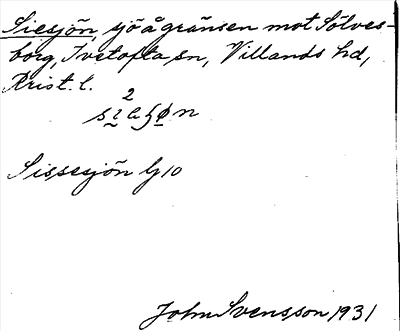 Siesjön, sjö å gränsen mot Sölves-
borg, Ivetofta sn, Villands hd,
Krist. l.
2
Sissesjön G10
John Svensson 1931